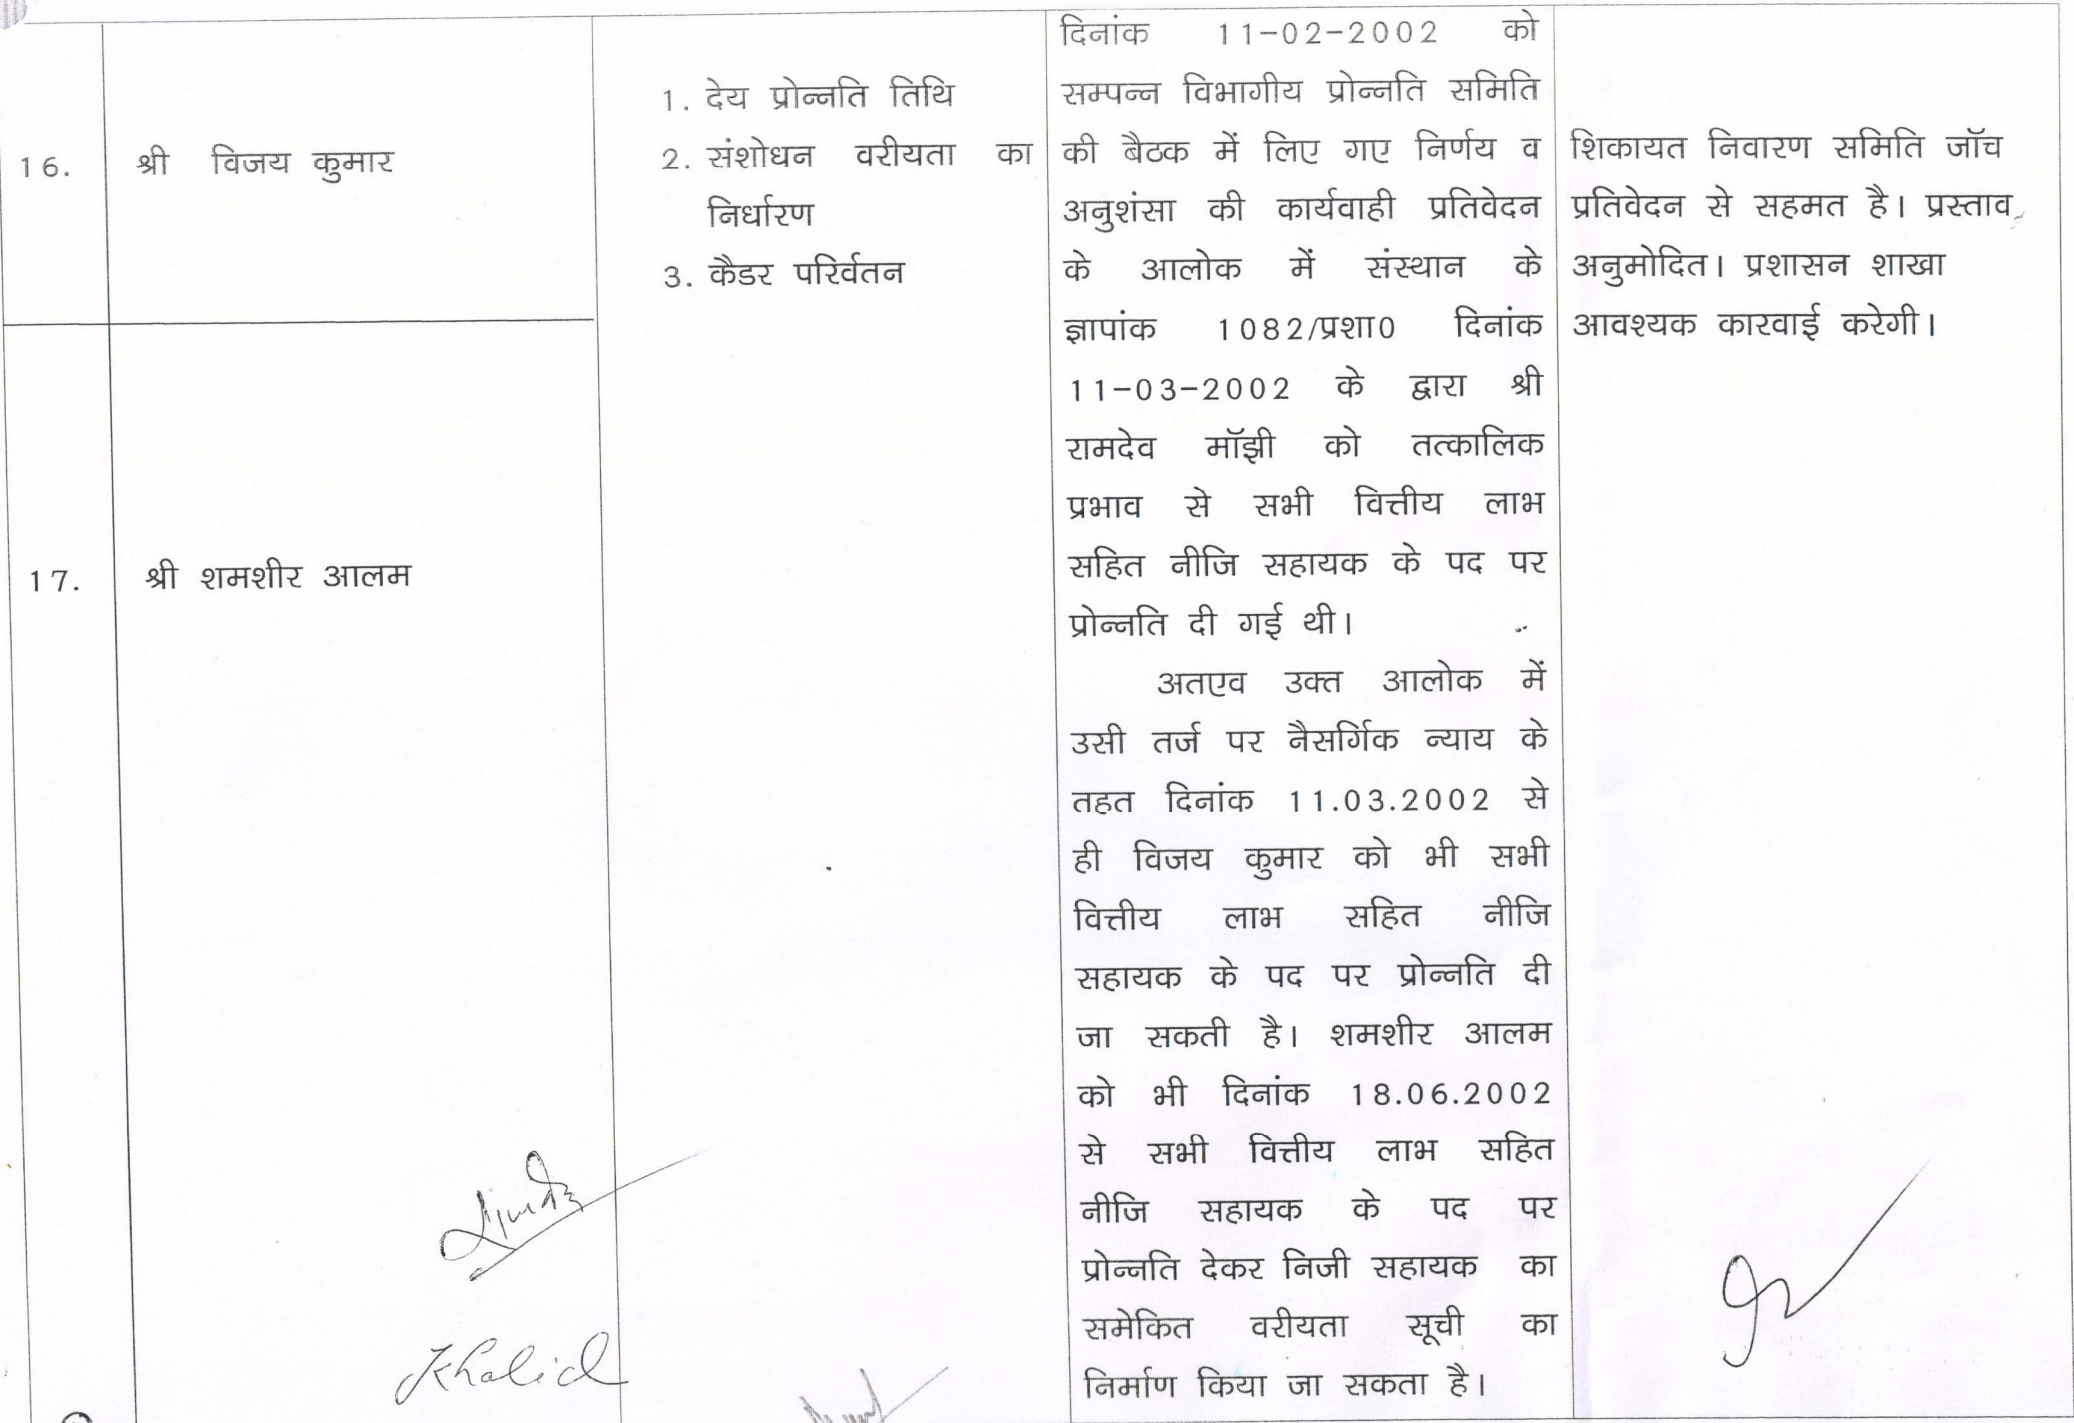 16.
श्री विजय कुमार
1. देय प्रोन्नति तिथि
2. संशोधन वरीयता का
निर्धारण
3. कैडर परिर्वतन
दिनांक 11-02-2002 को
सम्पन्न विभागीय प्रोन्नति समिति
की बैठक में लिए गए निर्णय व
अनुशंसा की कार्यवाही प्रतिवेदन
के आलोक में संस्थान के
ज्ञापांक 1082/प्रशा0 दिनांक
11-03-2002 के द्वारा श्री
रामदेव मॉझी को तत्कालिक
प्रभाव से सभी वित्तीय लाभ
सहित नीजि सहायक के पद पर
प्रोन्नति दी गई थी।
अतएव उक्त आलोक में
उसी तर्ज पर नैसर्गिक न्याय के
तहत दिनांक 11.03.2002 से
ही विजय कुमार को भी सभी
वित्तीय लाभ सहित नीजि
सहायक के पद पर प्रोन्नति दी
जा सकती है। शमशीर आलम
को भी दिनांक 18.06.2002
से सभी वित्तीय लाभ सहित
नीजि सहायक के पद पर
प्रोन्नति देकर निजी सहायक का
समेकित वरीयता सूची का
निर्माण किया जा सकता है।
शिकायत निवारण समिति जॉच
प्रतिवेदन से सहमत है। प्रस्ताव
अनुमोदित। प्रशासन शाखा
आवश्यक कारवाई करेगी।
17.
श्री शमशीर आलम
Khalid